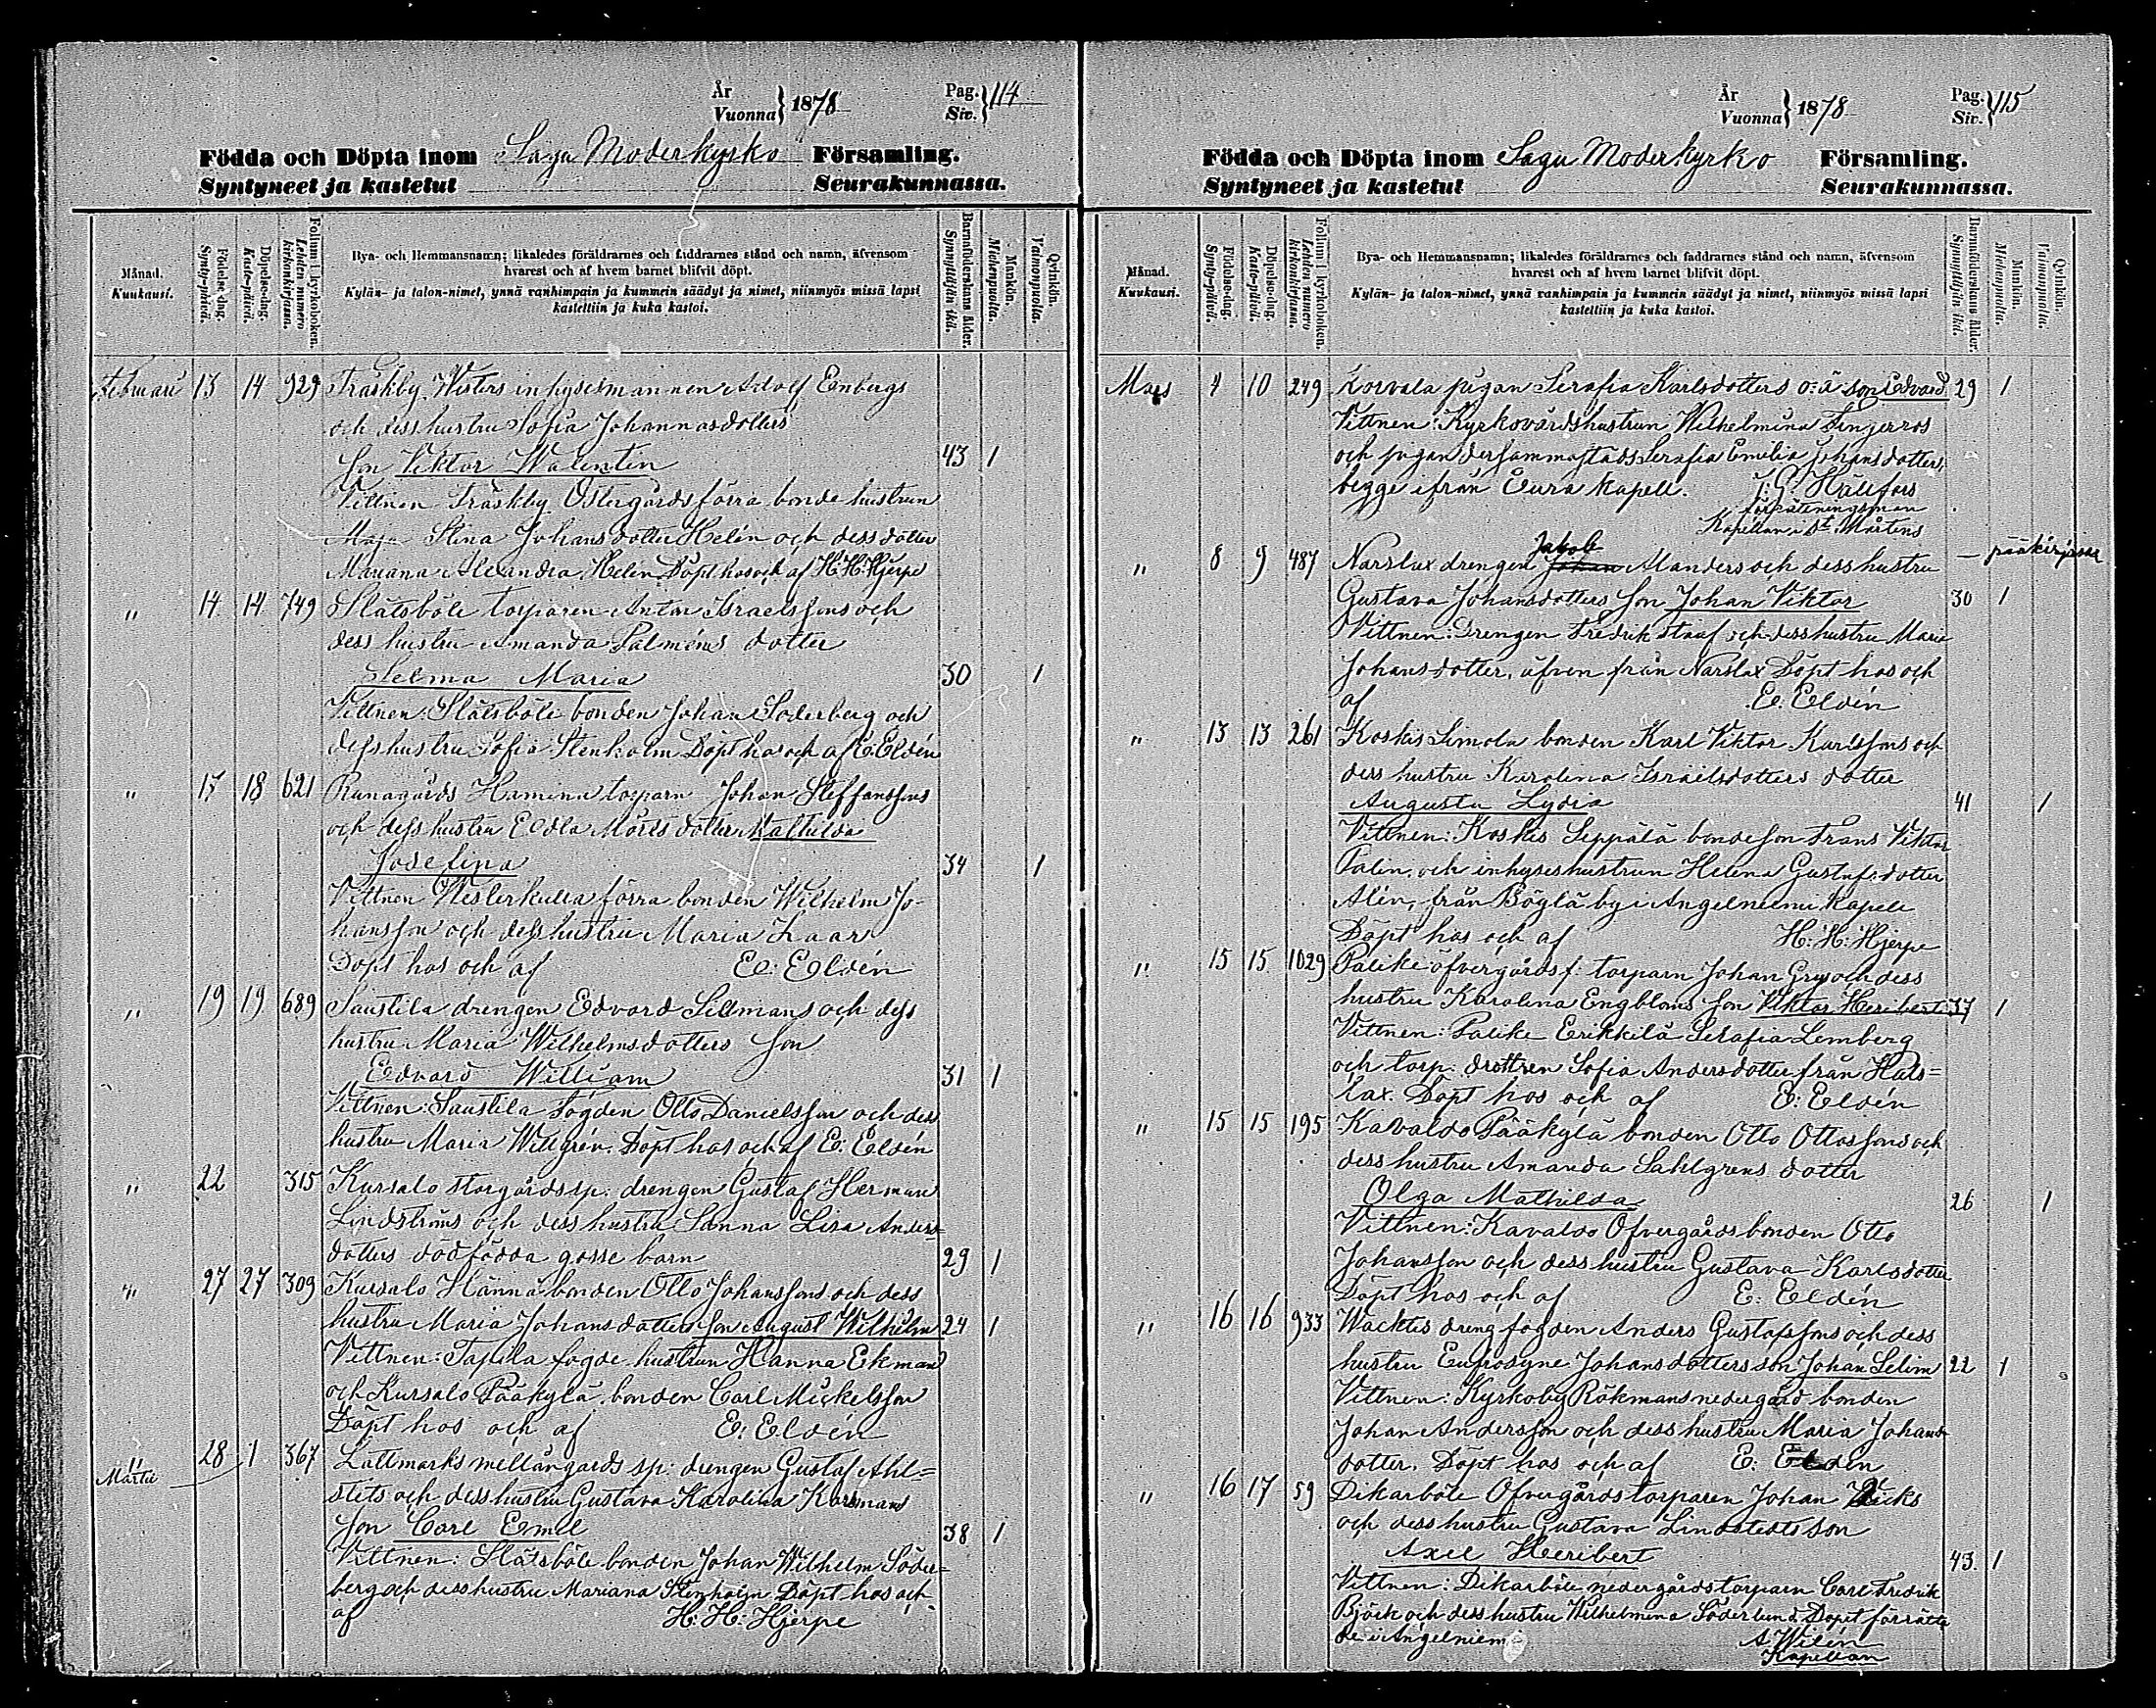 År
Vuonna } 1878
Pag.
Siv. } 114
Födda och Döpta inom Sagu Moderkyrko Församling.
Syntyneet ja kastetut Seurakunnassa.
Månad.
Kuukausi.
Födelse-dag.
Synty-päivä.
Döpelse-dag.
Kaste-päivä.
Folium i kyrkoboken.
Lehden numero kirkonkirjassa.
Bya- och Hemmansnamn; likaledes föräldrarnes och faddrarnes stånd och namn, äfvensom
hvarest och af hvem barnet blifvit döpt.
Kylän- ja talon-nimet, ynnä vanhimpain ja kummein säädyt ja nimet, niinmyös missä lapsi
kastettiin ja kuka kastoi.
Barnaföderskans ålder.
Synnyttäjän ikä.
Mankön.
Miehenpuolia.
Qvinkön.
Vaimonpuolia.
Februari 13 14 929 Träskby Westers inhysesmannen Adolf Enbergs
och dess hustru Sofia Johannasdotters
Son Viktor Walentin 43 1
Vittnen Träskby Östergårds förra bonde hustrun
Maja Stina Johansdotter Helén och dess dotter
Mariana Alexandra Helén Döpt hos och af H: H: Hjerpe
" 14 14 749 Slätsböle torparen Anton Israelssons och
dess hustru Amanda Salméns dotter
Selma Maria 30 1
Vittnen: Slätsböle bonden Johan Söderberg och
dess hustru Sofia Stenholm Döpt hos och af E: Eldén
" 17 18 621 Runagårds Hamina torparn Johan Steffanssons
och dess hustru Edla Mårtsdotters Mathilda
Josefina 34 1
Vittnen Westerkulla förra bonden Wilhelm Jo-
hansson och dess hustru Maria
Döpt hos och af E: Eldén
" 19 19 689 Saustila drengen Edvard Sillmans och dess
hustru Maria Wilhelmsdotters Son
Edvard William 31 1
Vittnen: Saustila fogden Otto Danielsson och dess
hustru Maria Willgrén. Döpt hos och af E: Eldén
" 22 315 Kursalo storgårds sp: drengen Gustaf Herman
Lindströms och dess hustru Sanna Lisa Anders-
dotters dödfödda gosse barn 29 1
" 27 27 309 Kursalo Hännä bonden Otto Johanssons och dess
hustru Maria Johansdotters Son August Wilhelm 24 1
Vittnen: Tapila fogde hustrun Hanna Ekman
och Kursalo Pääkylä bonden Carl Mickelsson
Döpt hos och af E: Eldén
" Martii 28 1 367 Lättmarks mellangårds sp: drengen Gustaf Ahl-
stets och dess hustru Gustava Karolina Korsmans
Son Carl Emil 38 1
Vittnen: Slätsböle bonden Johan Wilhelm Söder-
berg och dess hustru Mariana Stenholm Döpt hos och
af H: H: Hjerpe
År
Vuonna } 1878
Pag.
Siv. } 115
Födda och Döpta inom Sagu Moderkyrko Församling.
Syntyneet ja kastetut Seurakunnassa.
Månad.
Kuukausi.
Födelse-dag.
Synty-päivä.
Döpelse-dag.
Kaste-päivä.
Folium i kyrkoboken.
Lehden numero kirkonkirjassa.
Bya- och Hemmansnamn; likaledes föräldrarnes och faddrarnes stånd och namn, äfvensom
hvarest och af hvem barnet blifvit döpt.
Kylän- ja talon-nimet, ynnä vanhimpain ja kummein säädyt ja nimet, niinmyös missä lapsi
kastettiin ja kuka kastoi.
Barnaföderskans ålder.
Synnyttäjän ikä.
Mankön.
Miehenpuolia.
Qvinkön.
Vaimonpuolia.
Mars 4 10 249 Korvala pigan Serafia Karlsdotters o: ä son Edvard 29 1
Vittnen: Kyrkovärdshustrun Wilhelmina Fingerros
och pigan dersammastäds Serafia Emilia Johansdotter,
begge ifrån Eura Kapell. J: G: Hällfors
Kapellan i St Mårtens
" 8 9 487 Narslax drengen Johan Jakob Alanders och dess hustru — pääkirjassa
Gustava Johansdotters Son Johan Viktor 30 1
Vittnen: Drengen Fredrik Staaf och dess hustru Maria
Johansdotter, äfven från Narslax Döpt hos och
af E: Eldén
" 13 13 261 Koskis Simola bonden Karl Viktor Karlssons och
dess hustru Karolina Israelsdotters dotter
Augusta Lydia 41 1
Vittnen: Koskis Seppälä bondeson Frans Viktor
Palin, och inhyseshustrun Helena Gustafsdotter
Alén, från Böylä by i Angelniemi Kapell
Döpt hos och af H: H: Hjerpe
" 15 15 1029 Palike öfvergårds f: torparn Johan Grys och dess
hustru Karolina Engbloms Son Viktor Heribert 37 1
Vittnen: Palike Erikkilä Serafia Lemberg
och torp: dottren Sofia Andersdotter från Hals-
lax. Döpt hos och af E: Eldén
" 15 15 195 Kavaldo Pääkylä bonden Otto Ottossons och
dess hustru Amanda Sahlgrens dotter
Olga Mathilda 26 1
Vittnen: Kavaldo Öfvergårds bonden Otto
Johansson och dess hustru Gustava Karlsdotter
Döpt hos och af E: Eldén
" 16 16 933 Wacktis drengfogden Anders Gustafssons och dess
hustru Eufrosyne Johansdotters son Johan Selim 22 1
Vittnen: Kyrkoby Råkmans nedergård bonden
Johan Andersson och dess hustru Maria Johans-
dotter. Döpt hos och af E: Eldén
" 16 17 59 Dikarböle Öfvergårds torparen Johan
och dess hustru Gustava Lindstedts son
Axel Heribert 43. 1
Vittnen: Dikarböle nedergårds torparn Carl Fredrik
Björk och dess hustru Wilhelmina Söderlund. Dopet förrätta
de i Angelniemi A Wilén
Kapellan